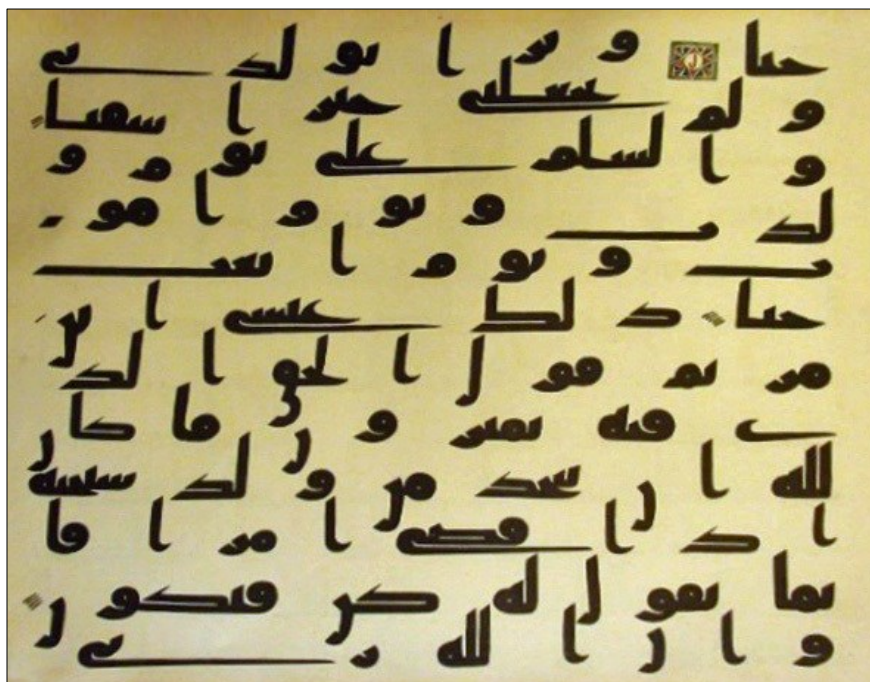 حيا وبرا بولدتي
ولم يجعلني جبرا شقيا
والسلم علي يوم و
لدت ويوم امو
ت ويوم ابعث
حيا ذلك عيسى ابن
مريم قول الحق الذ
ي فيه يمترون ما كان
لله ان يتخذ من ولد سبحنه
اذا قضى امرا فا
نما يقول له كن فيكون
وان الله ربي